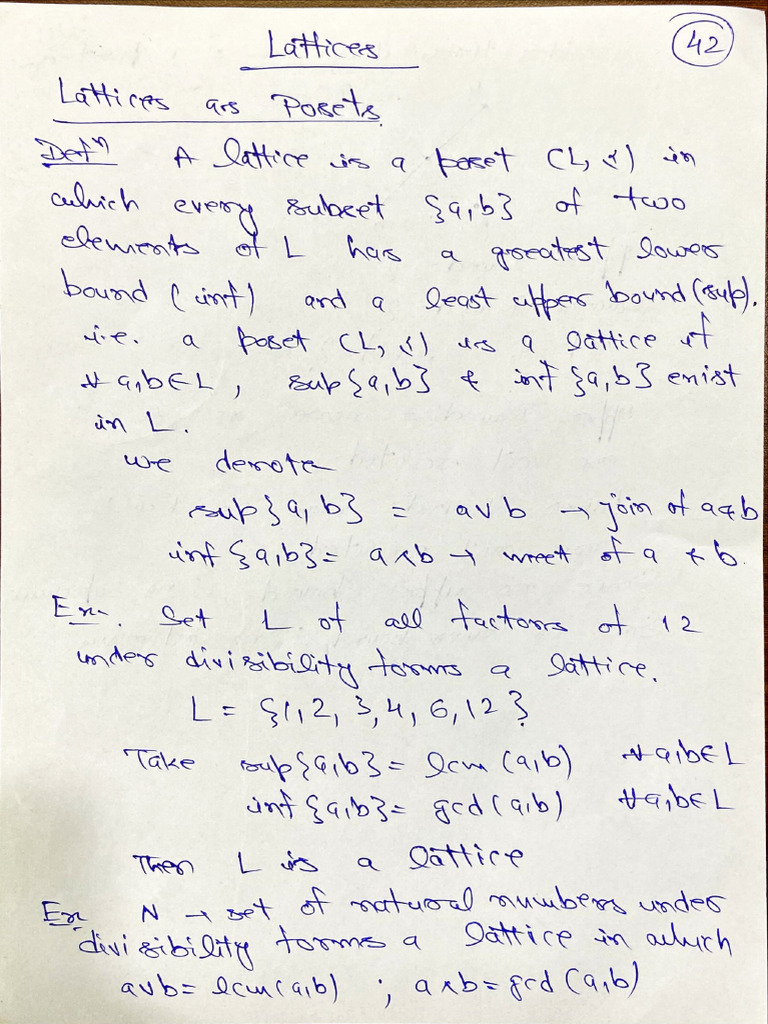 Lattices
42
Lattices as Posets
Defⁿ A lattice is a poset (L, ≤) in
which every subset {a,b} of two
elements of L has a greatest lower
bound (inf) and a least upper bound (sup).
i.e. a poset (L, ≤) is a lattice if
∀ a,b∈L, sup{a,b} & inf {a,b} exist
in L.
we denote
sup{a, b} = a∨b → join of a & b
inf {a,b} = a∧b → meet of a & b.
Ex. Set L of all factors of 12
under divisibility forms a lattice.
L = {1, 2, 3, 4, 6, 12}
Take sup{a,b} = lcm (a,b) ∀ a,b∈L
inf {a,b} = gcd (a,b) ∀ a,b∈L
Then L is a lattice
Ex. N → set of natural numbers under
divisibility forms a lattice in which
a∨b = lcm(a,b) ; a∧b = gcd (a,b)